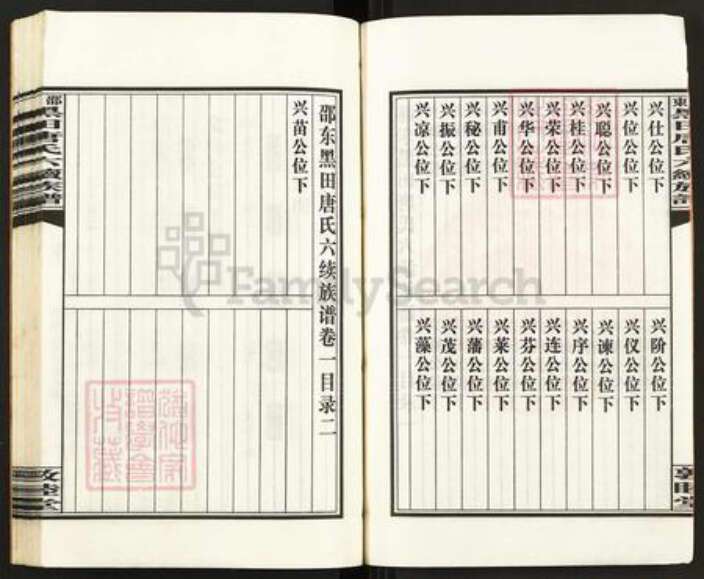 兴仕公位下
兴位公位下
兴聪公位下
兴桂公位下
兴荣公位下
兴华公位下
兴甫公位下
兴秘公位下
兴振公位下
兴凉公位下
兴阶公位下
兴仪公位下
兴谏公位下
兴序公位下
兴连公位下
兴芬公位下
兴莱公位下
兴藩公位下
兴茂公位下
兴藻公位下
邵东黑田唐氏六续族谱卷一目录二
兴苗公位下
FamilySearch